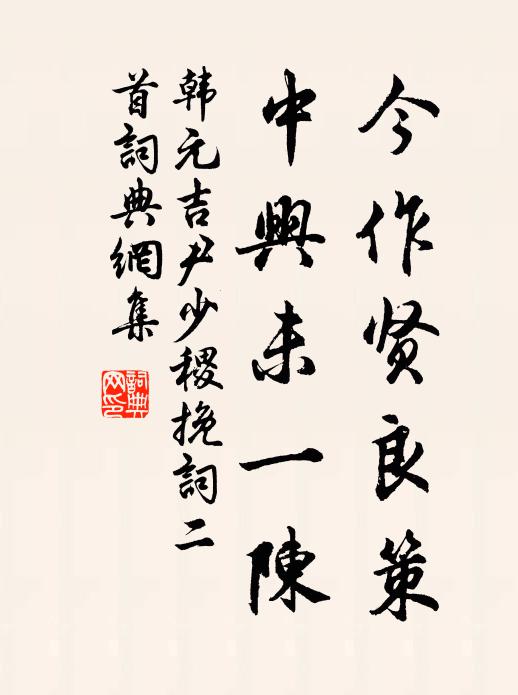 今作贤良策
中興未一陳
韩元吉尹少稷挽詞二
首詞典網集
詞典網印